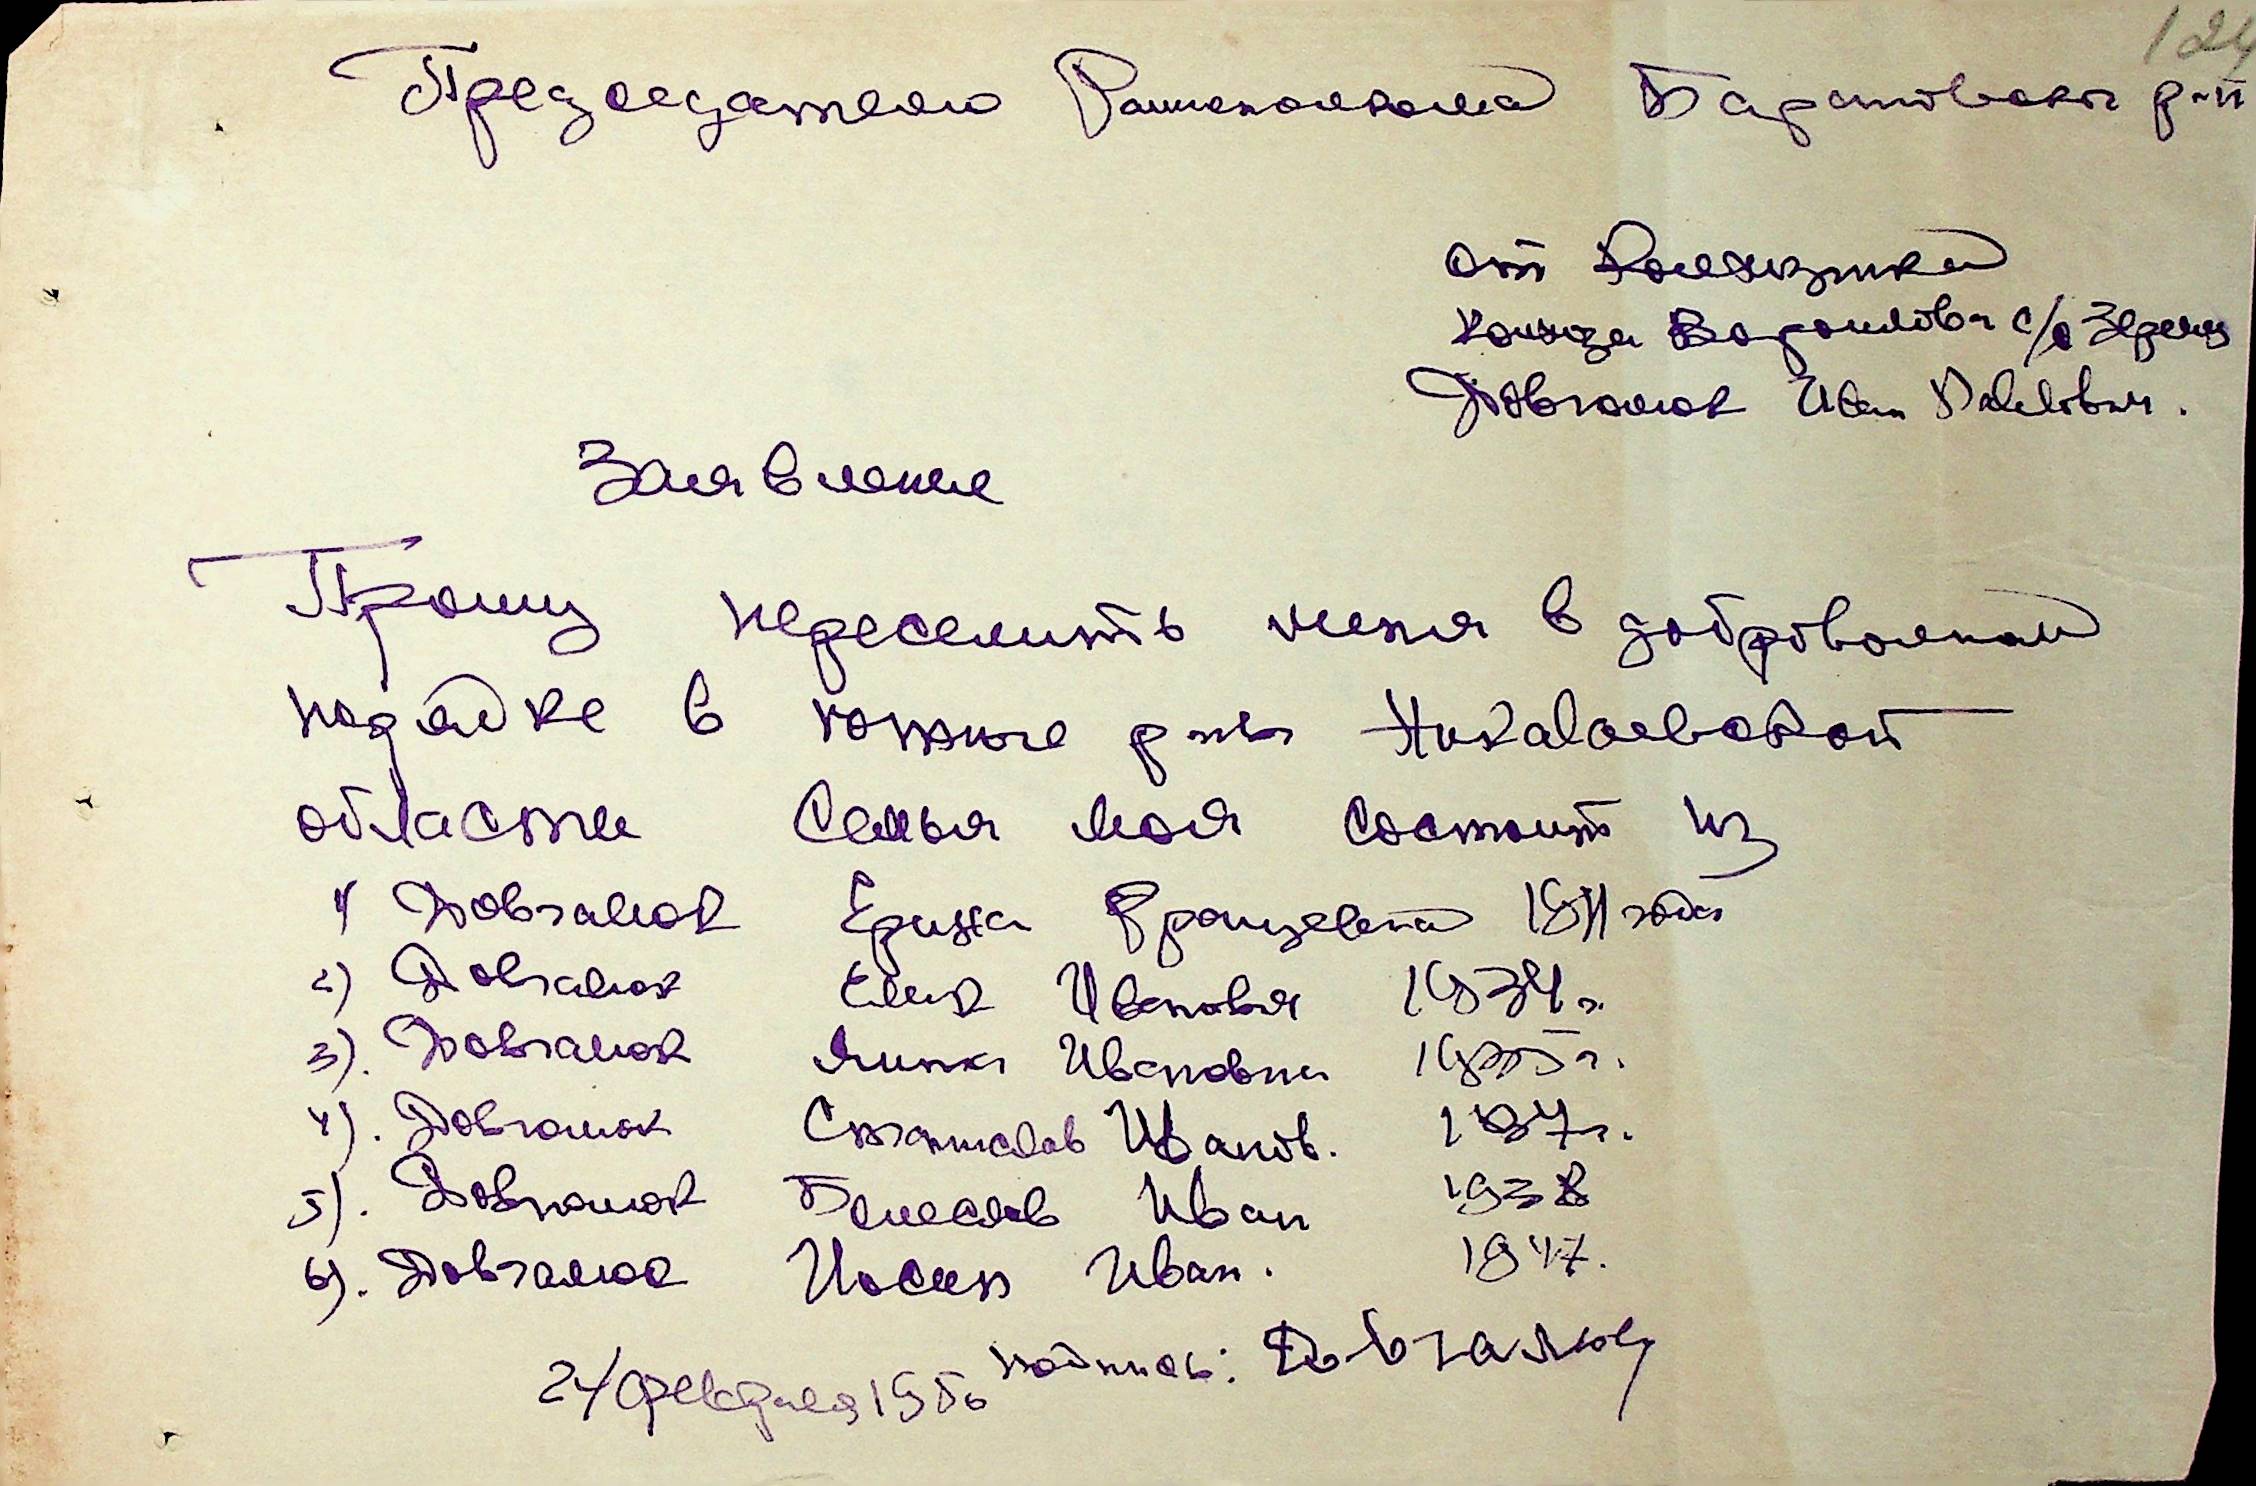 124
Председателю Райисполкома Барановской р-н
от Колхозника
колхоза Ворошилова с/с Зеремл
Довгалюк Иван Павлович.
Заявление
Прошу переселить меня в добровольном
порядке в южные р-ны Николаевской
области Семья моя состоит из
1) Довгалюк Францевна 1911 года
2) Довгалюк Иванович 1934 г.
3). Довгалюк Янина Ивановна 1935 г.
4). Довгалюк Станислав Иванов. 1937 г.
5). Довгалюк Болеслав Иван 1938
6). Довгалюк Иосип Иван. 1947.
24/февраля 1950 подпись: Довгалюк